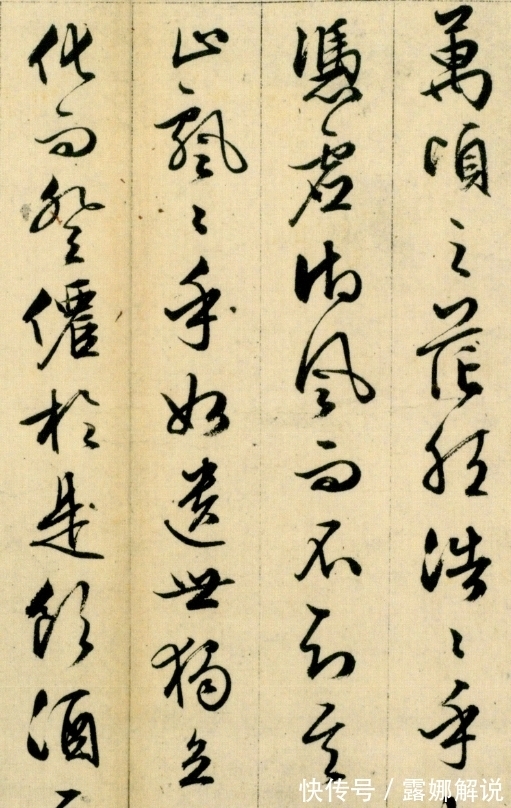 萬頃之茫然浩〻乎
憑虛御風而不知其
止飄〻乎如遺世獨立
化而登僊於是飲酒
快传号 / 露娜解说